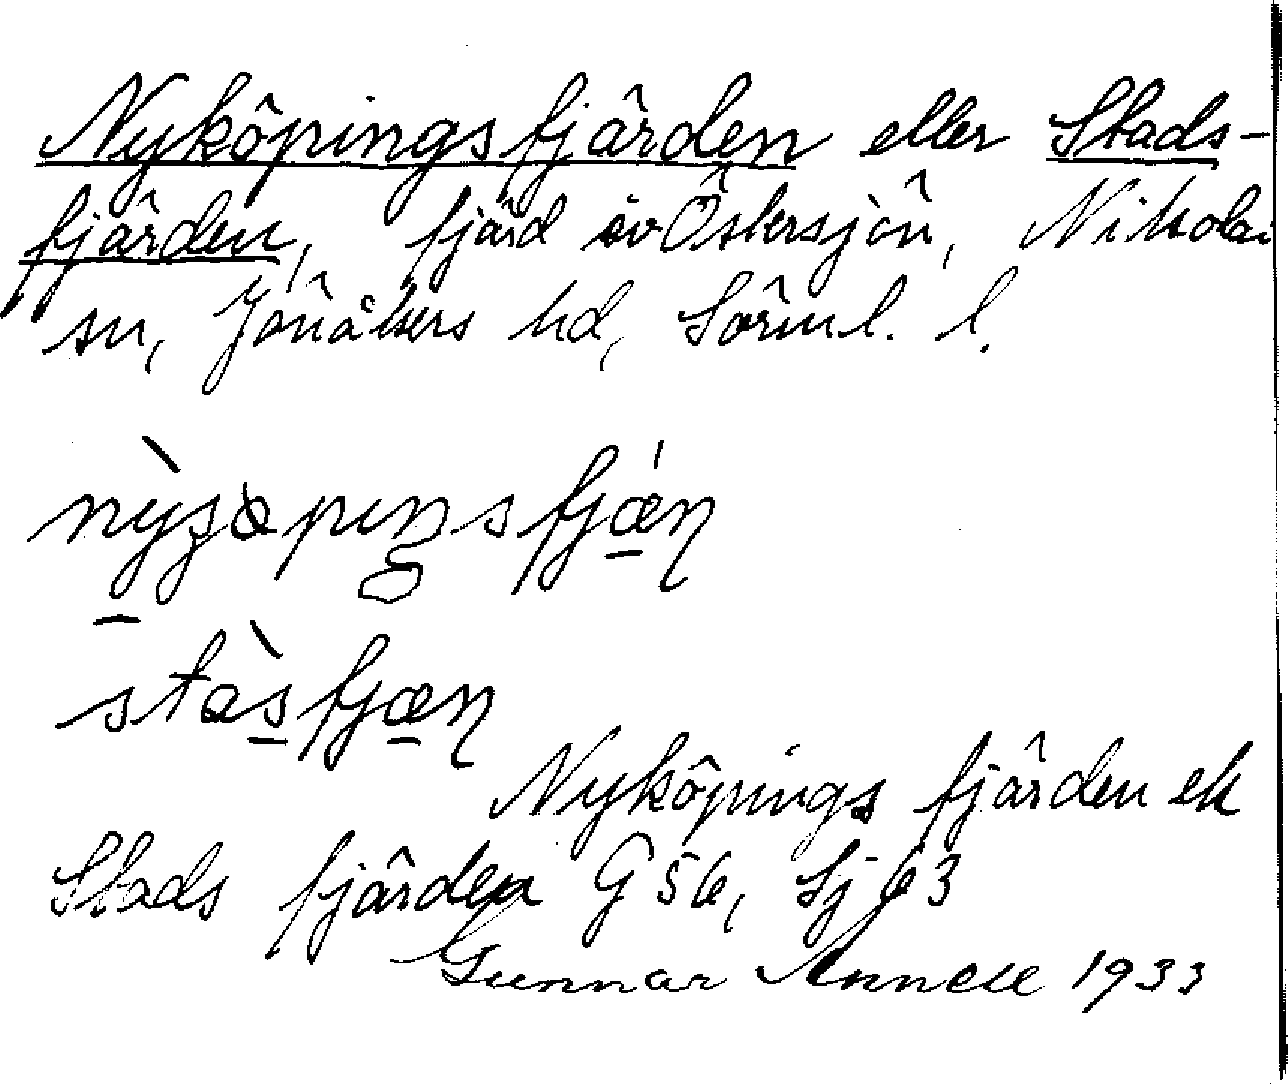 Nyköpingsfjärden eller Stads-
fjärden, fjärd av Östersjön, Nikolai
sn, Jönåkers hd, Sörml. l.
stàsfjæn
Nyköpings fjärden el
Stads fjärden G 56, Sj 63
Gunnar Annell 1933